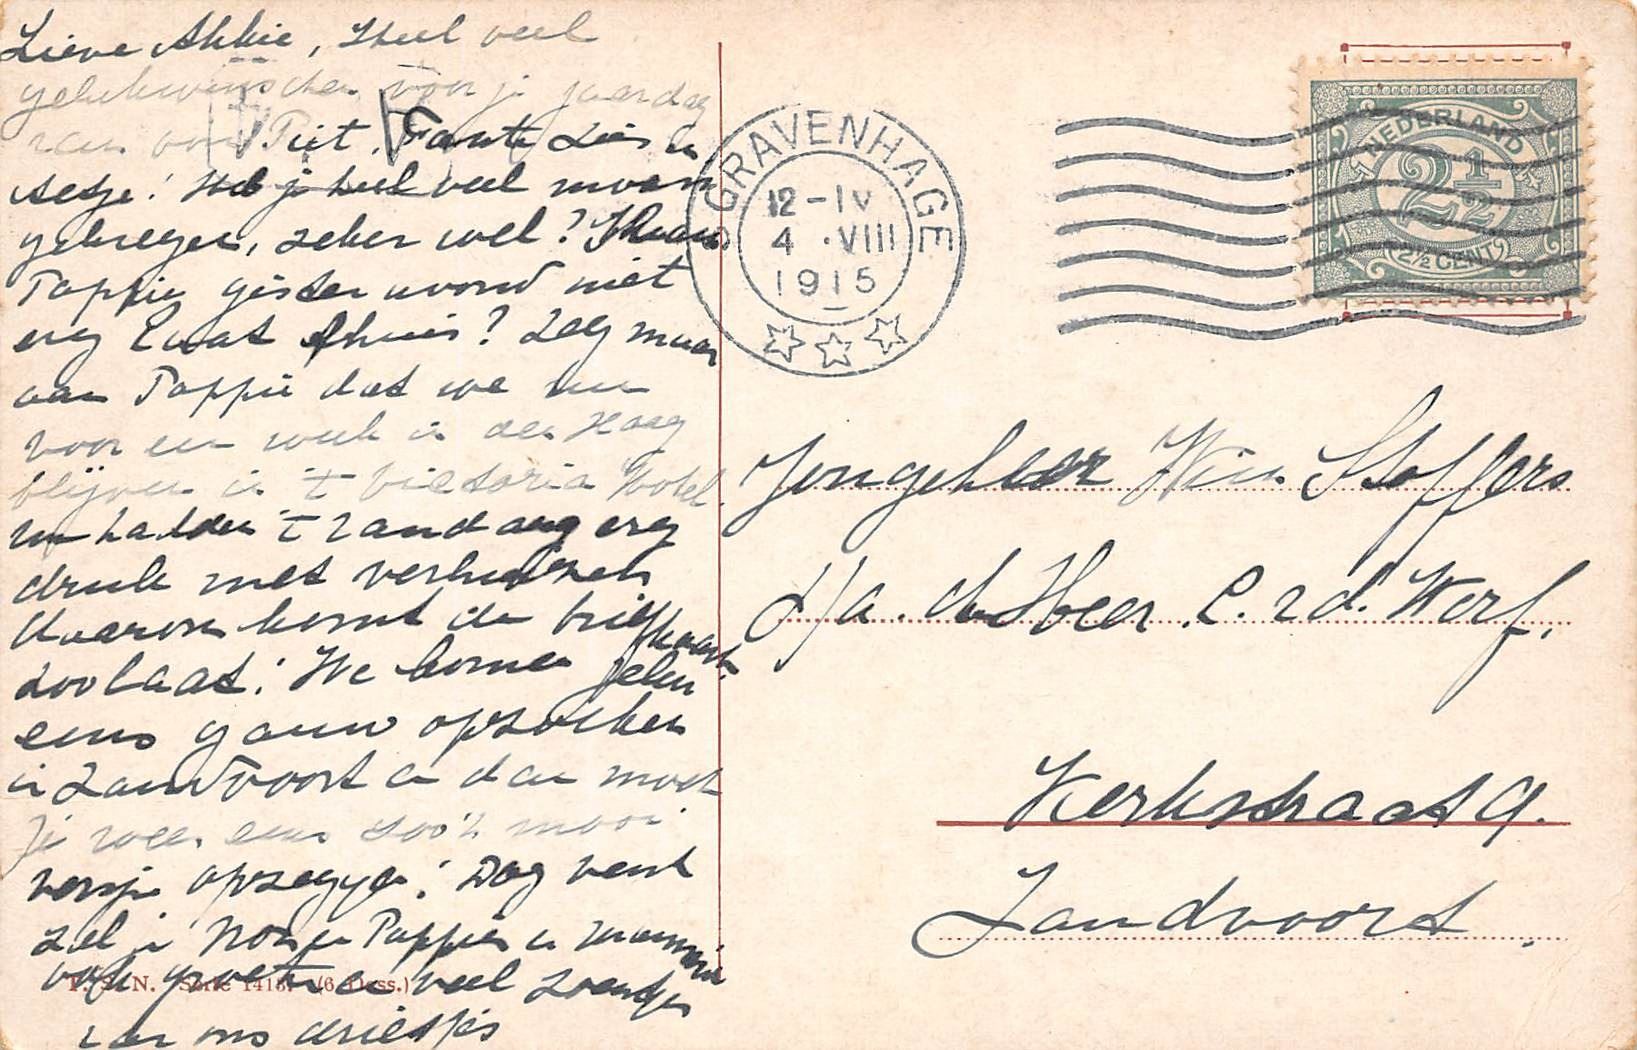 Lieve Akkie, Heel veel
gelukwenschen voor je jaardag
van oom Piet, Tante Lies en
setje! Heb je heel veel moois
gekregen, zeker wel? Kwam
Pappie gister avond niet
erg laat thuis? Zeg maar
aan Pappie dat we nu
voor een week in den Haag
blijven in 't Victoria Hotel
we hadden 't vandaag erg
druk met verhuizen
daarom komt de briefkaart
zoo laat! We komen jelui
eens gauw opzoeken
in Zandvoort en dan moet
je weer eens zoo'n mooi
versje opzeggen! Dag vent
zal je Pappie en Mammie
ook groeten en veel zoentjes
van ons drietjes
T. S. N. Serie 1413. (6 Dess.)
'S GRAVENHAGE
12-IV
4 ·VIII
1915
NEDERLAND
2½
2½ CENT
Jongeheer Wim Stoffers
p/a. den Heer. P. v.d. Werf.
Kerkstraat 9.
Zandvoort.